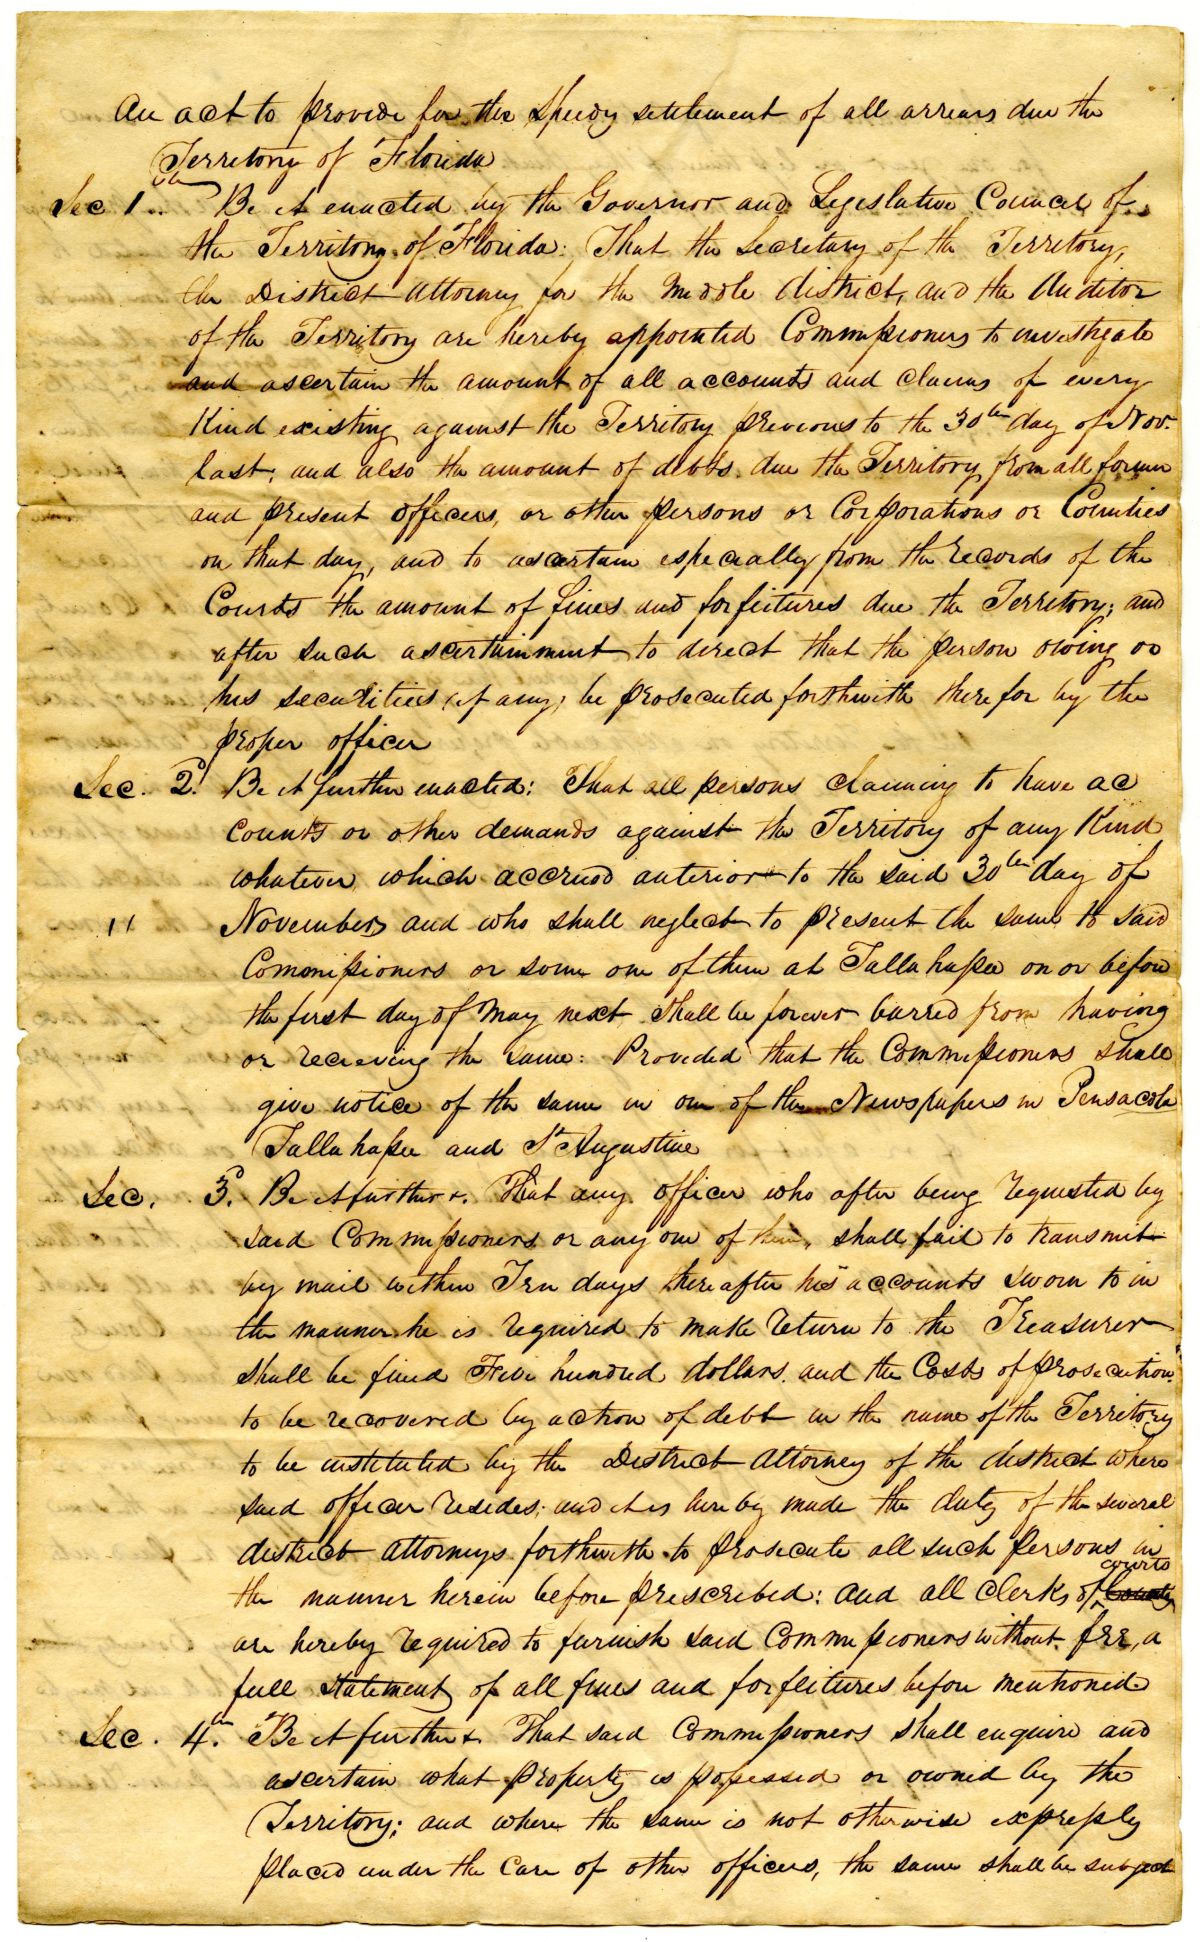 An act to provide for the Speedy settlement of all arrears due the
Territory of Florida
Sec 1.. Be it enacted by the Governor and Legislative Council of
the Territory of Florida: That the Secretary of the Territory,
the District attorney for the Middle district, and the Auditor
of the Territory are hereby appointed Commissioners to investigate
and ascertain the amount of all accounts and claims of every
Kind existing against the Territory previous to the 30th day of Nov.
last; and also the amount of debts due the Territory from all former
and present officers, or other persons or Corporations or Counties
on that day, and to ascertain especially from the records of the
Courts the amount of fines and forfeitures due the Territory; and
after such ascertainment to direct that the person owing or
his securities (if any) be prosecuted forthwith therefor by the
proper officer
Sec. 2d. Be it further enacted: That all persons claiming to have ac
counts or other demands against the Territory of any Kind
whatever which accrued anterior to the said 30th day of
" November and who shall neglect to present the same to said
Commissioners or some one of them at Tallahassee on or before
the first day of May next shall be forever barred from having
or recieving the same: Provided that the Commissioners shall
give notice of the same in one of the Newspapers in Pensacola
Tallahassee and St Augustine
Sec. 3d. Be it further &. That any officer who after being requested by
said Commissioners or any one of them, shall fail to transmit
by mail within Ten days thereafter his accounts sworn to in
the manner he is required to make return to the Treasurer
shall be fined Five hundred dollars and the Costs of prosecution
to be recovered by action of debt in the name of the Territory
to be instituted by the District attorney of the district where
said officer resides; and it is hereby made the duty of the several
district attorneys forthwith to prosecute all such persons in
the manner herein before prescribed: and all Clerks of courts County
are hereby required to furnish said Commissioners without fee, a
full statement of all fines and forfeitures before mentioned
Sec. 4th. Be it further &. That said Commissioners shall enquire and
ascertain what property is possessed or owned by the
Territory; and where the same is not otherwise expressly
placed under the care of other officers, the same shall be subject